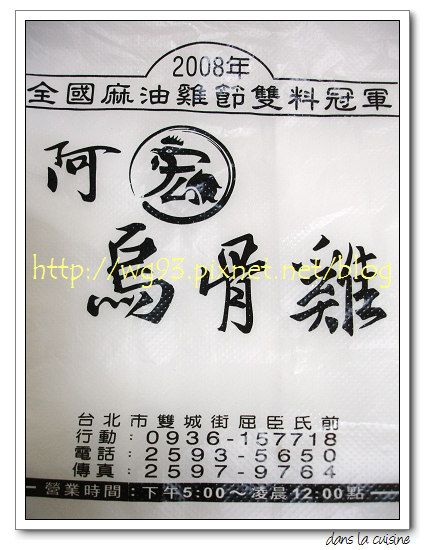 2008年
全國麻油雞節雙料冠軍
阿宏
http://wg93.pixnet.net/blog
烏骨雞
台北市雙城街屈臣氏前
行動：0936-157718
電話：2593-5650
傳真：2597-9764
營業時間：下午5:00～凌晨12:00點
dans la cuisine